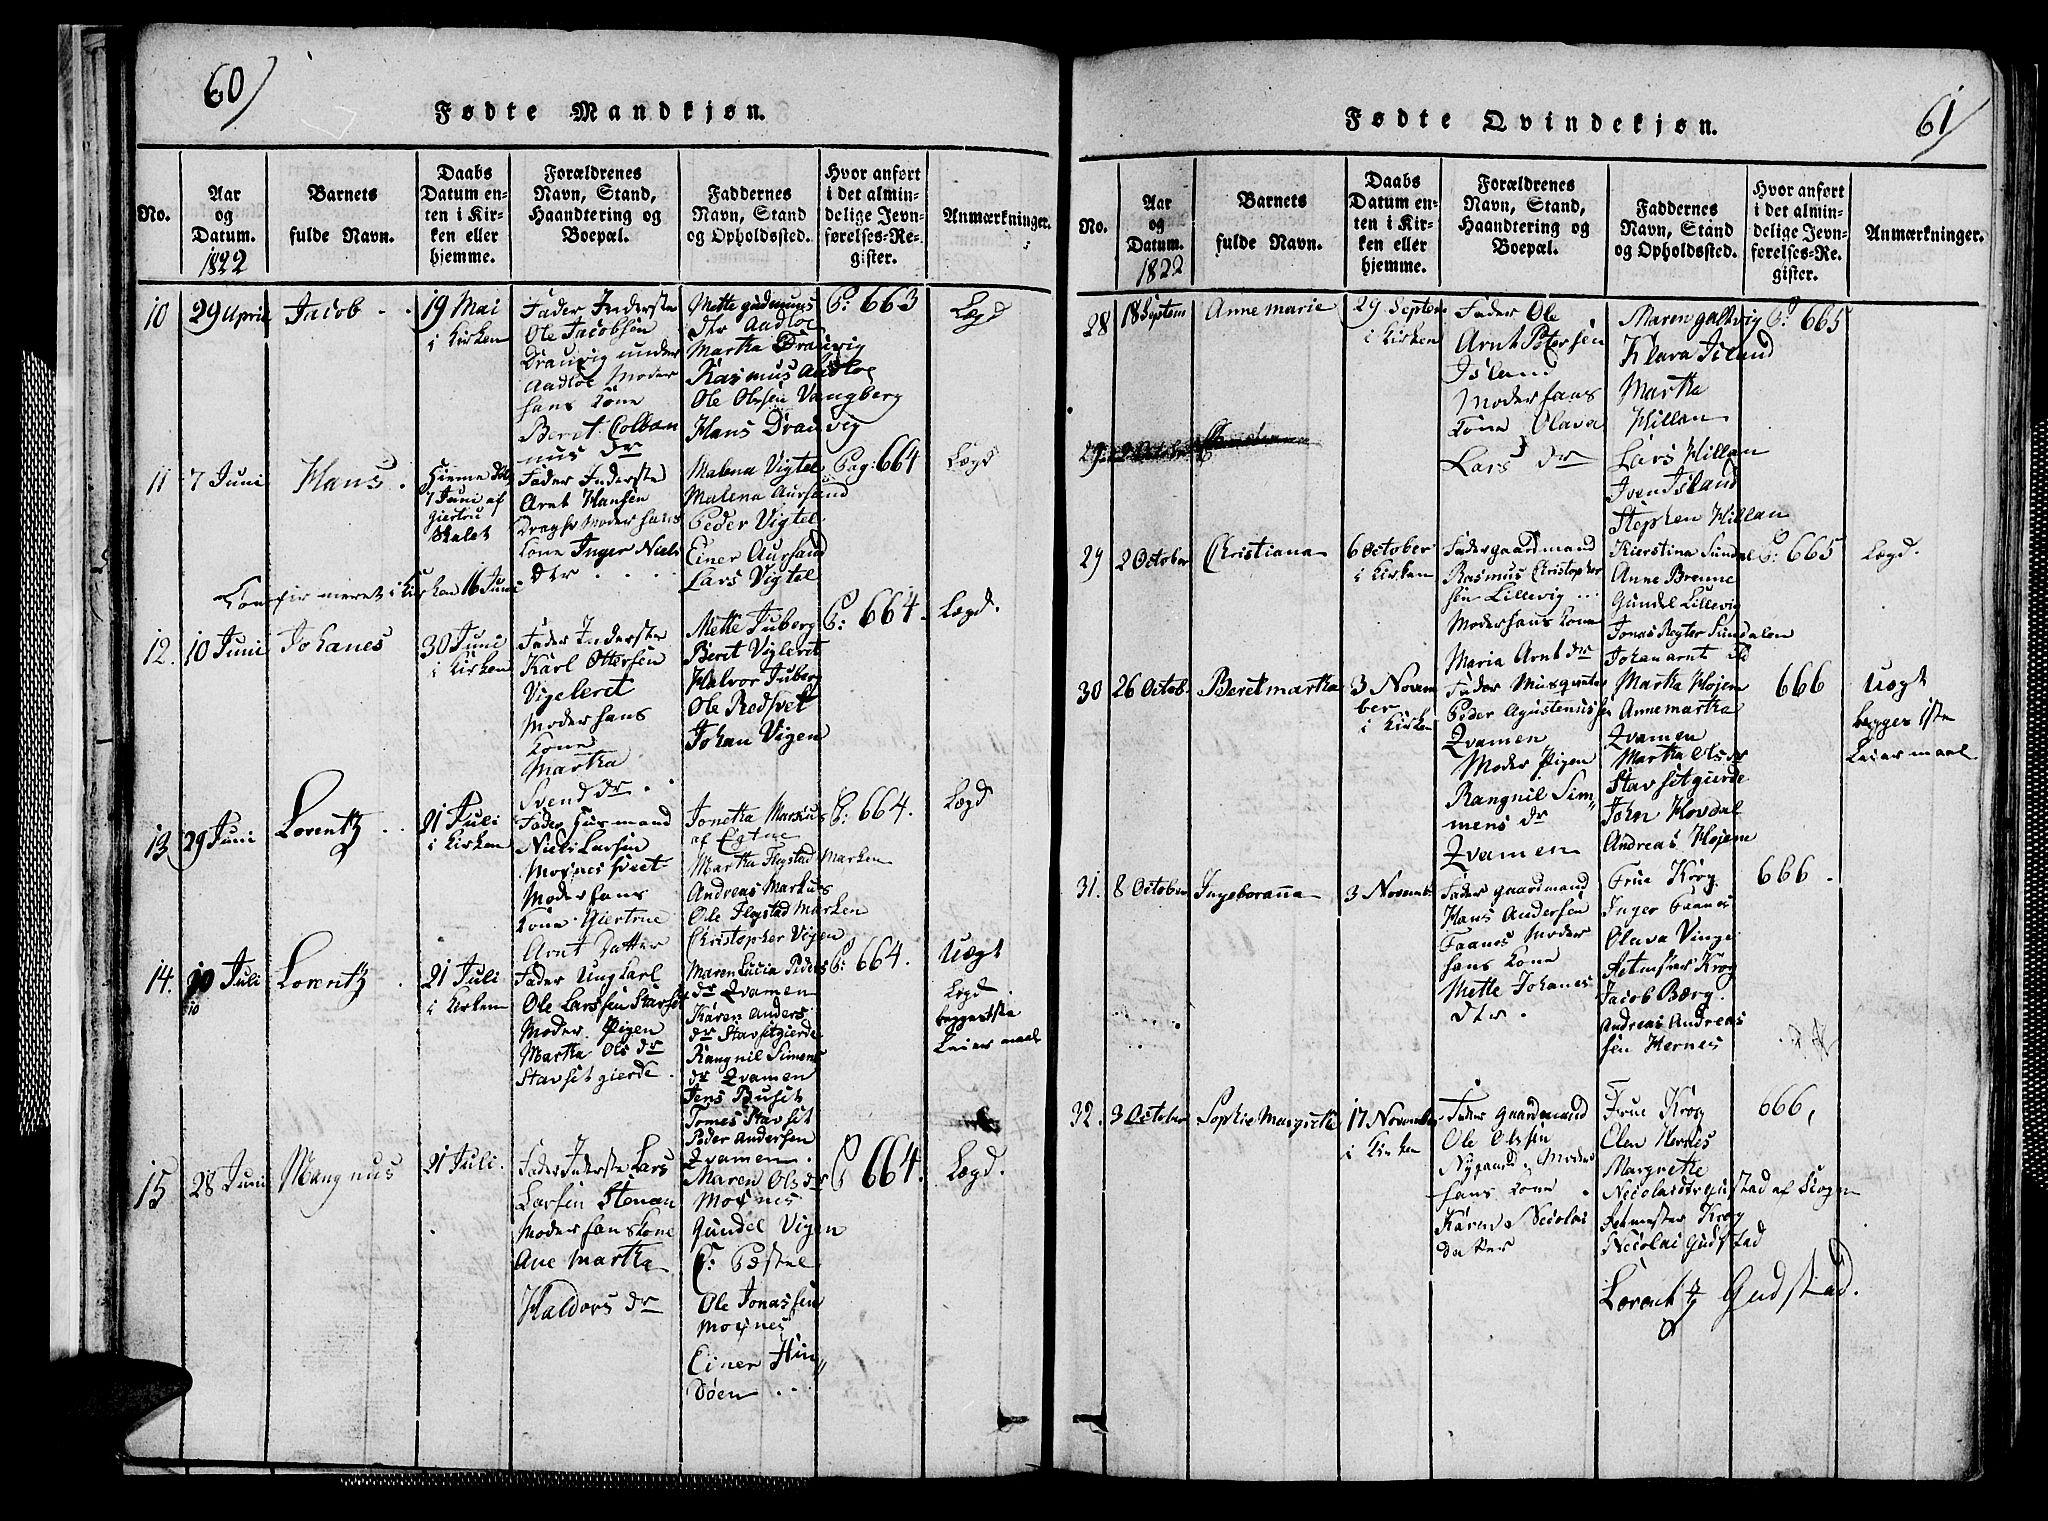 60/
Fødte Mandkjøn.
No.
Aar
og
Datum.
1822
Barnets
fulde Navn.
Daabs
Datum en-
ten i Kir-
ken eller
hjemme.
Forældrenes
Navn, Stand,
Haandtering og
Boepæl.
Faddernes
Navn, Stand
og Opholdssted.
Hvor anført
i det almin-
delige Jevn-
førelses-Re-
gister.
Anmærkninger.
10
29 April
Jacob
19 Mai
i Kirken
Fader Inderste
Ole Jacobsen
Drauvig under
Aadloe Moder
hans Kone
Beret Colban
nus dr
Mette gudmuns
dtr Aadloe
Martha Drauvig
Rasmus Aadloe
Ole Olssen Vangberg
Hans Drauvig
P: 663
11
7 Juni
Hans
Hieme
7 Juni af
Giertru
Fader Inderste
Arnt Hansen
Moder hans
Kone Inger Niels
dtr
Malena Vigtel
Malena Aursand
Peder Vigtel
Einer Aursand
Lars Vigtel
Pag: 664
Lægd
Confirmeret i Kirken 16 Juni
12.
10 Juni
Johanes
30 Juni
i Kirken
Fader Inderste
Karl Ottersen
Vigeleret
Moder hans
Kone
Martha
Svend dr
Mette Juberg
Beret Vigleret
Halvor Juberg
Ole Rodsvet
Johan Vigen
P: 664
Lægd.
13
29 Juni
Lorentz
21 Juli
i Kirken
Fader Husmand
Niels Larsen
Moxnes
Moder hans
Kone Giertrue
Arnt Datter
Jonetta Markus
af Egtne
Martha Flystad Marken
Andreas Markus
Ole Flystad Marken
Christopher Vigen
P: 664.
Lægd
14.
10 Juli
10
Lorentz
21 Juli
i Kirken
Fader Ungkarl
Ole Larssen Stavset
Moder Pigen
Martha Ols dr
Stavsit gierde
Maren Lucia Peders
dr Qvamen
Karen Anders
dr Stavsitgierde
Rangnil Simens
dr Qvamen
Jens Busit
Tomes Stavsit
Peder Andersen
Qvamen
P: 664.
Uægt
Lægd
begges 1ste
Leiermaal
15
28 Juni
Mangnus
21 Juli.
Fader Inderste Lars
Larsen Stenan
Moder hans Kone
Ane Martha
Haldors dr
Maren Ols dr
Moxnes
Gundel Vigen
P: Pæstel
Ole Jonassen
Moxnes
Einer Hin
døen
P 664.
Lægd.
61/
Fødte Qvindekjøn.
No.
Aar
og
Datum.
1822
Barnets
fulde Navn.
Daabs
Datum en-
ten i Kir-
ken eller
hjemme.
Forældrenes
Navn, Stand,
Haandtering og
Boepæl.
Faddernes
Navn, Stand
og Opholdssted.
Hvor anført
i det almin-
delige Jevn-
førelses-Re-
gister.
Anmærkninger.
28
18 Septem
Anne marie
29 Septem
i Kirken
Fader Ole
Arnt Petersen
Island
Moder hans
Kone Olava
Lars dr
Maren galtvig
Klara Island
Martha
Hillan
Lars Hillan
Iven Island
Stephen Hillan
P: 665
29
29
2 October
Christiana
6 October
i Kirken
Fader gaardmand
Rasmus Christopher
sen Lillevig
Moder hans Kone
Maria Arnt dr
Kierstina Sundal
Anne Brenne
Gundel Lillevig
Jonas Røgter Sundalen
Johan arnt
P: 665
Lægd.
30
26 Octob.
Beret martha
3 Novem
ber
i Kirken
Fader Musqveter
Peder Agustenussen
Qvamen
Moder Pigen
Rangnil Sim
mens dr
Qvamen
Martha Højem
Anne martha
Qvamen
Martha Ols dr
Stavsitgierde
John Hovdal
Andreas Højem
666
Uægt
begges 1ste
Leiermaal
31.
8 October
Ingeboranna
3 Novemb
Fader gaardmand
Hans Andersen
Faanes Moder
hans Kone
Mette Johanes
dtr.
Frue Krog
Inger Faanes
Olava Vinge
Retmester Krog
Jacob Bærg.
Andreas Andreas
sen Hernes
666.
32.
3 October
Sophie Margrethe
17 November
i Kirken
Fader gaardmand
Ole Olssen
Nygaard Moder
hans Kone
Karen Nicolai
datter
Frue Krog
Elen Hernes
Margrethe
Nicolai
Retmester Krog
Nicolai Gudstad
Lorentz Gudstad.
666,